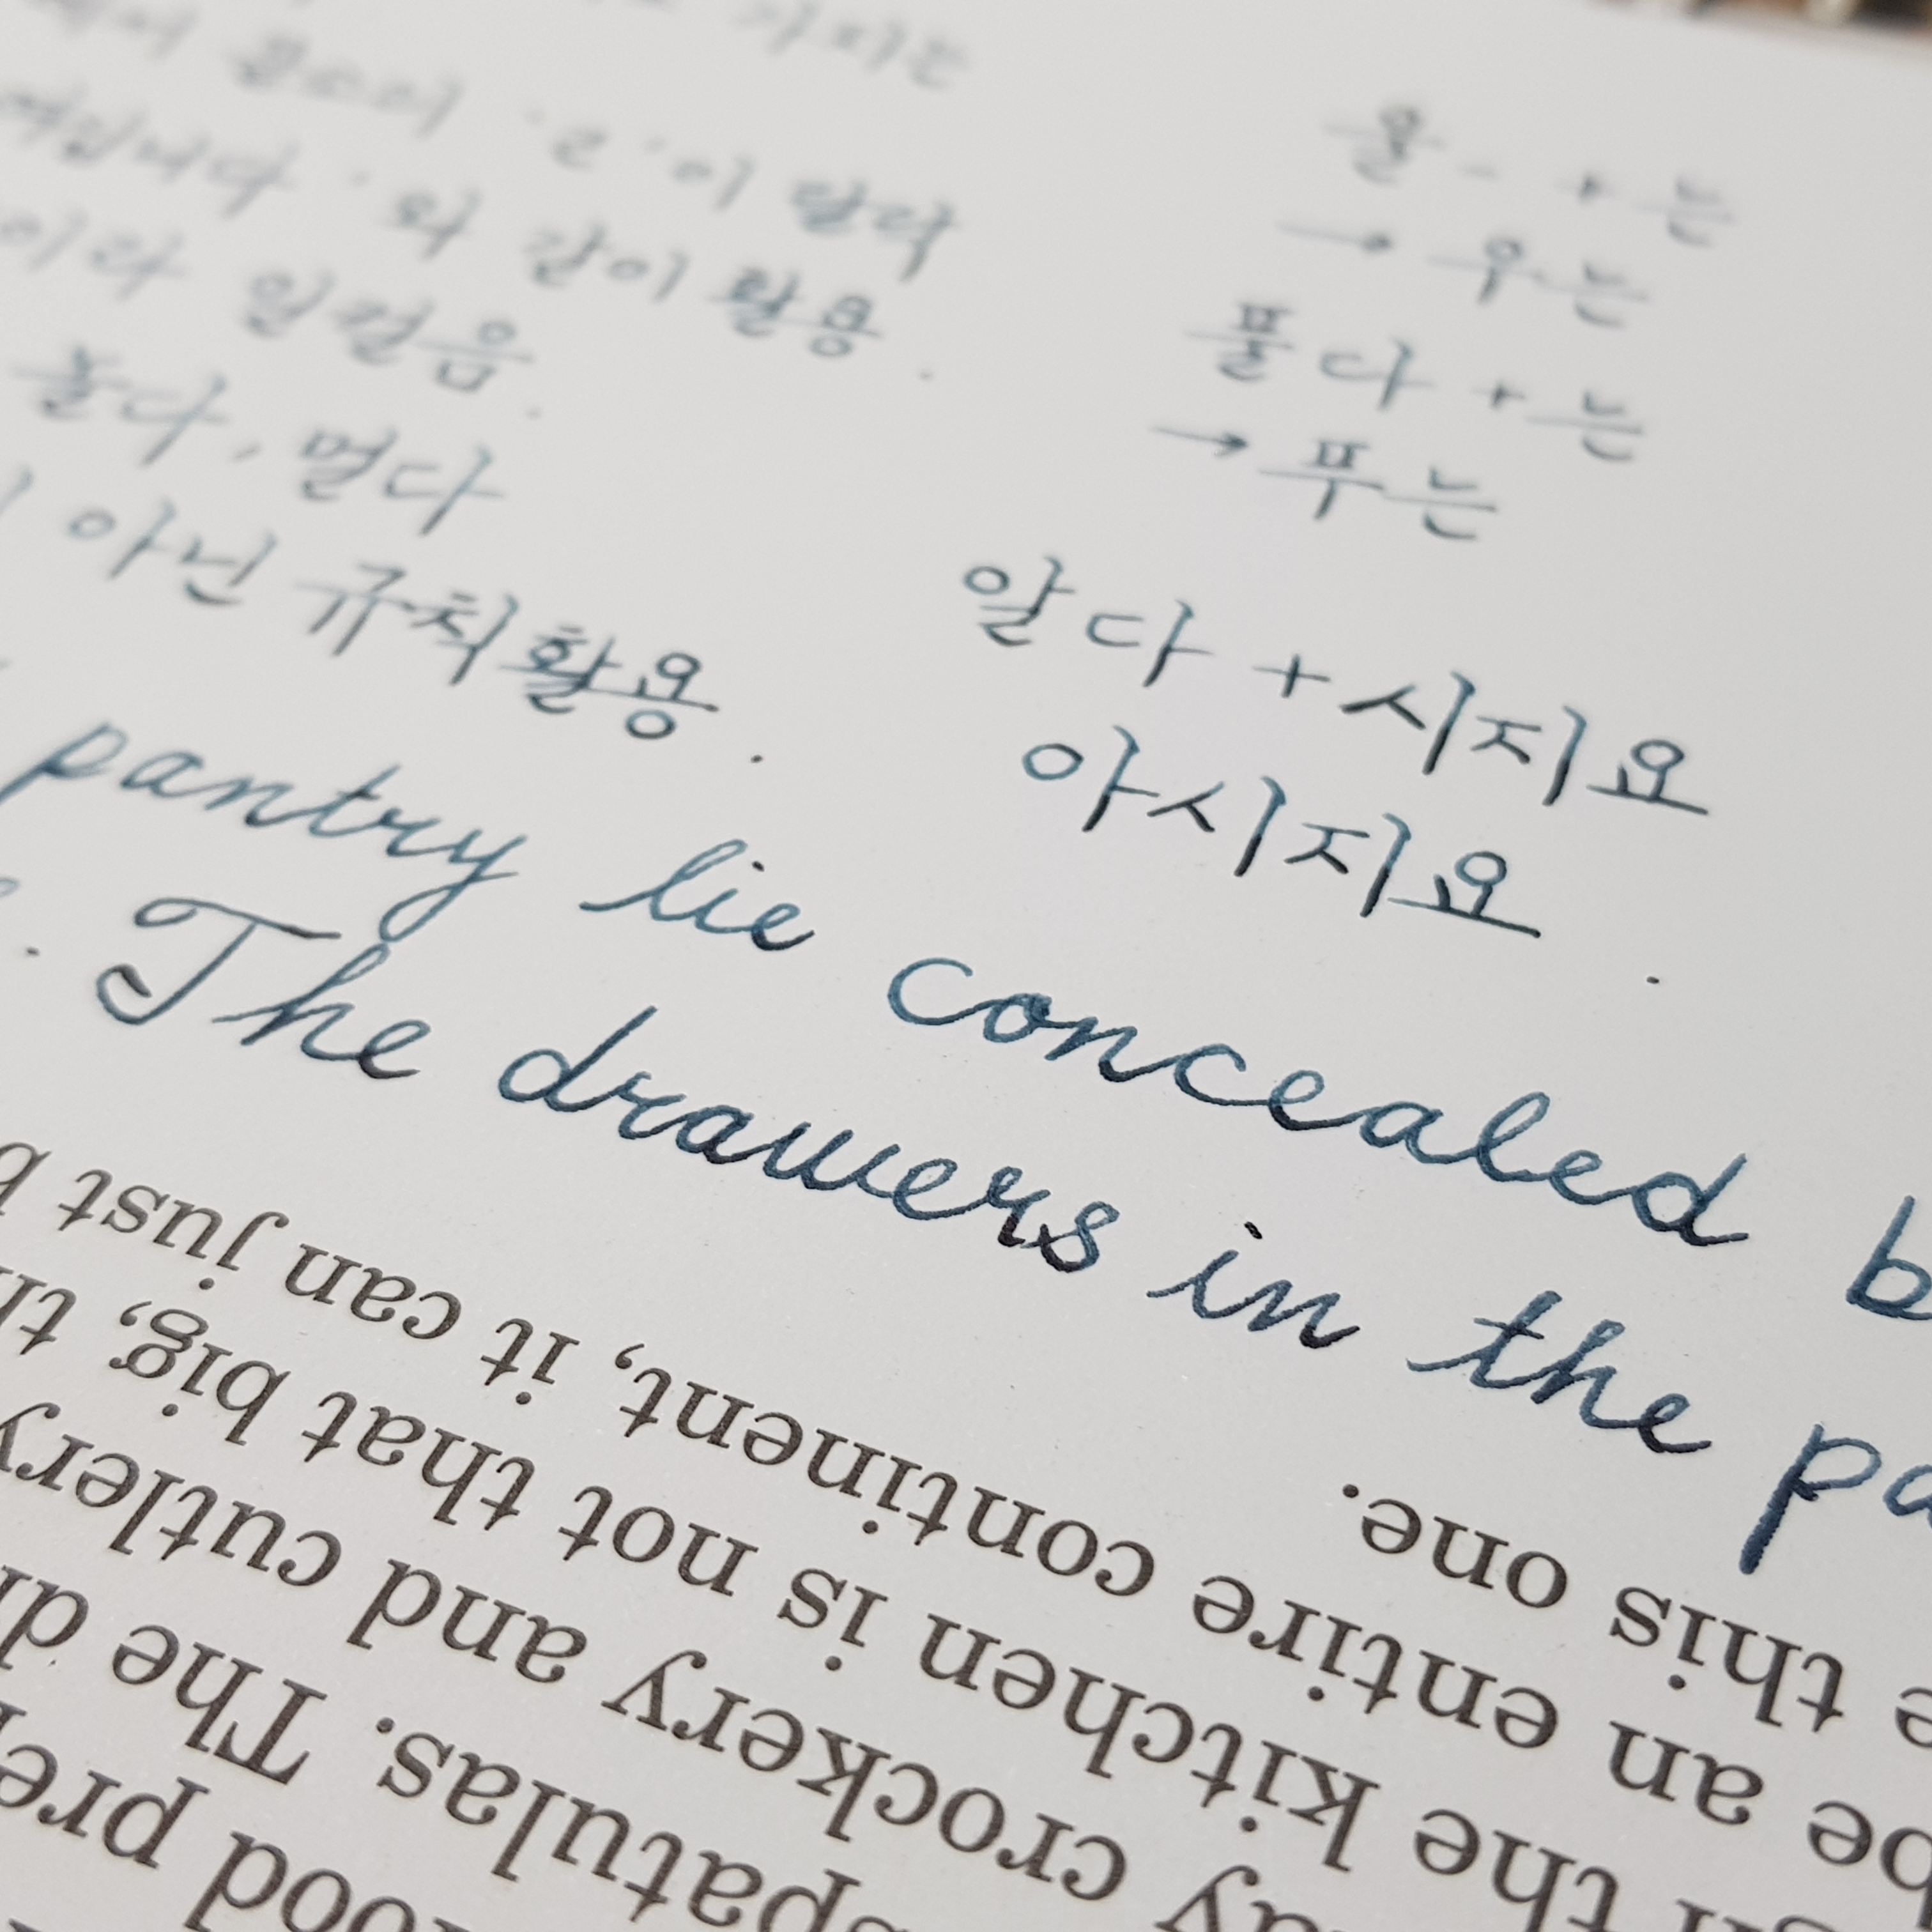 가지는
끝소리 'ㄹ'이 탈락
와 같이 활용.
이라 일컬음.
놀다, 멀다
아닌 규칙활용.
울- + 는
→ 우는
풀다 + 는
→ 푸는
알다 + 시지요
아시지요.
pantry lie concealed b
. The drawers in the pa
this one.
be an entire continent, it can just b
the kitchen is not that big, th
crockery and cutlery
spatulas. The dr
food pre